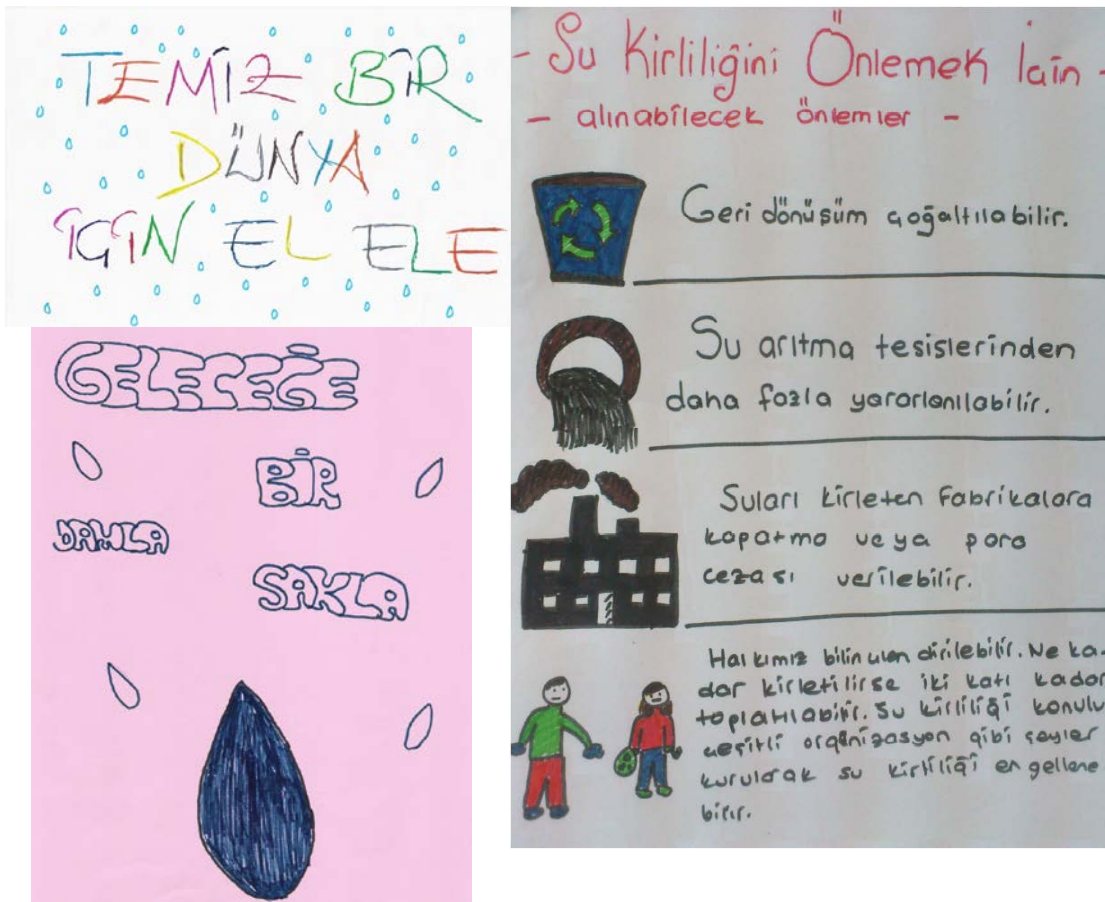 TEMİZ BİR
DÜNYA
İÇİN EL ELE
GELECEĞE
BİR
DAMLA
SAKLA
- Su Kirliliğini Önlemek İçin -
- alınabilecek önlemler -
Geri dönüşüm çoğaltılabilir.
Su arıtma tesislerinden
daha fazla yararlanılabilir.
Suları kirleten Fabrikalara
kapatma veya para
cezası verilebilir.
Halkımız bilinçlendirilebilir. Ne ka-
dar kirletilirse iki katı kadar
toplatılabilir. Su kirliliği konulu
çeşitli organizasyon gibi şeyler
kurularak su kirliliği engellene
bilir.